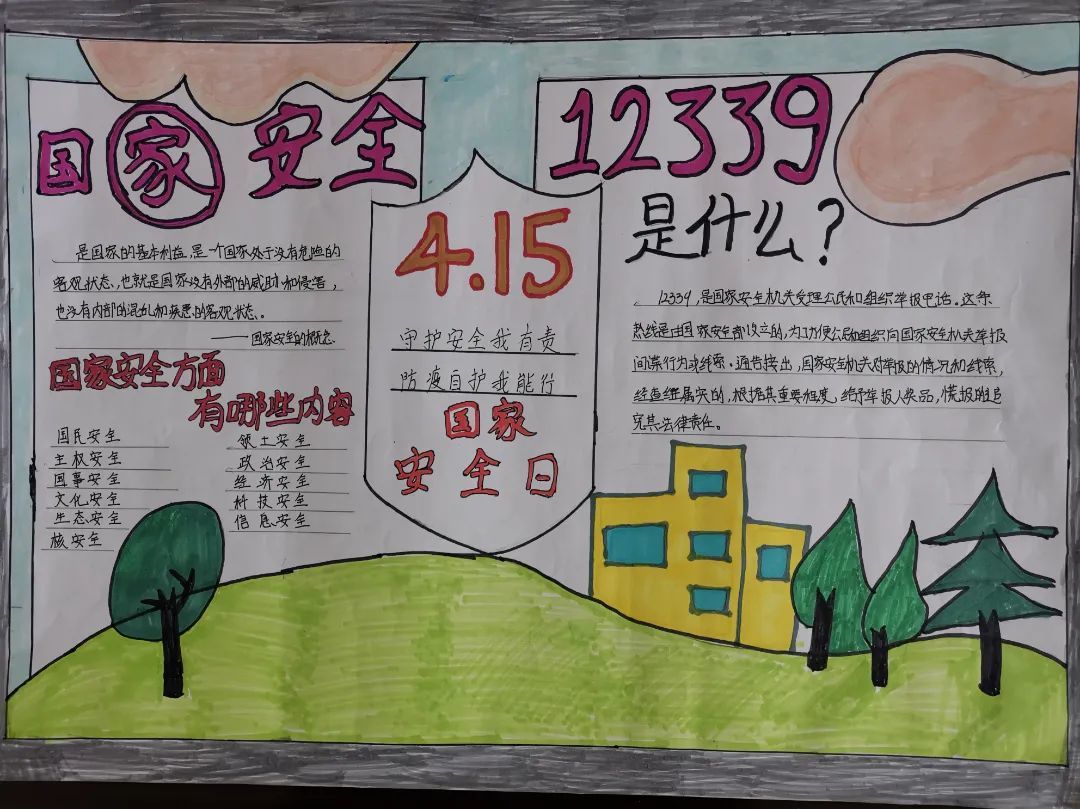 国家安全
是国家的基本利益,是一个国家处于没有危险的
客观状态,也就是国家没有外部的威胁和侵害,
也没有内部的混乱和疾患的客观状态。
——国家安全的概念
国家安全方面
有哪些内容
国民安全
主权安全
国事安全
文化安全
生态安全
核安全
领土安全
政治安全
经济安全
科技安全
信息安全
4.15
守护安全我有责
防疫自护我能行
国家
安全日
12339
是什么?
12339,是国家安全机关受理公民和组织举报电话。这条
热线是由国家安全部设立的,为方便公民和组织向国家安全机关举报
间谍行为或线索。通告指出,国家安全机关对举报的情况和线索,
经查证属实的,根据其重要程度,给予举报人奖品,慌报的追
究其法律责任。